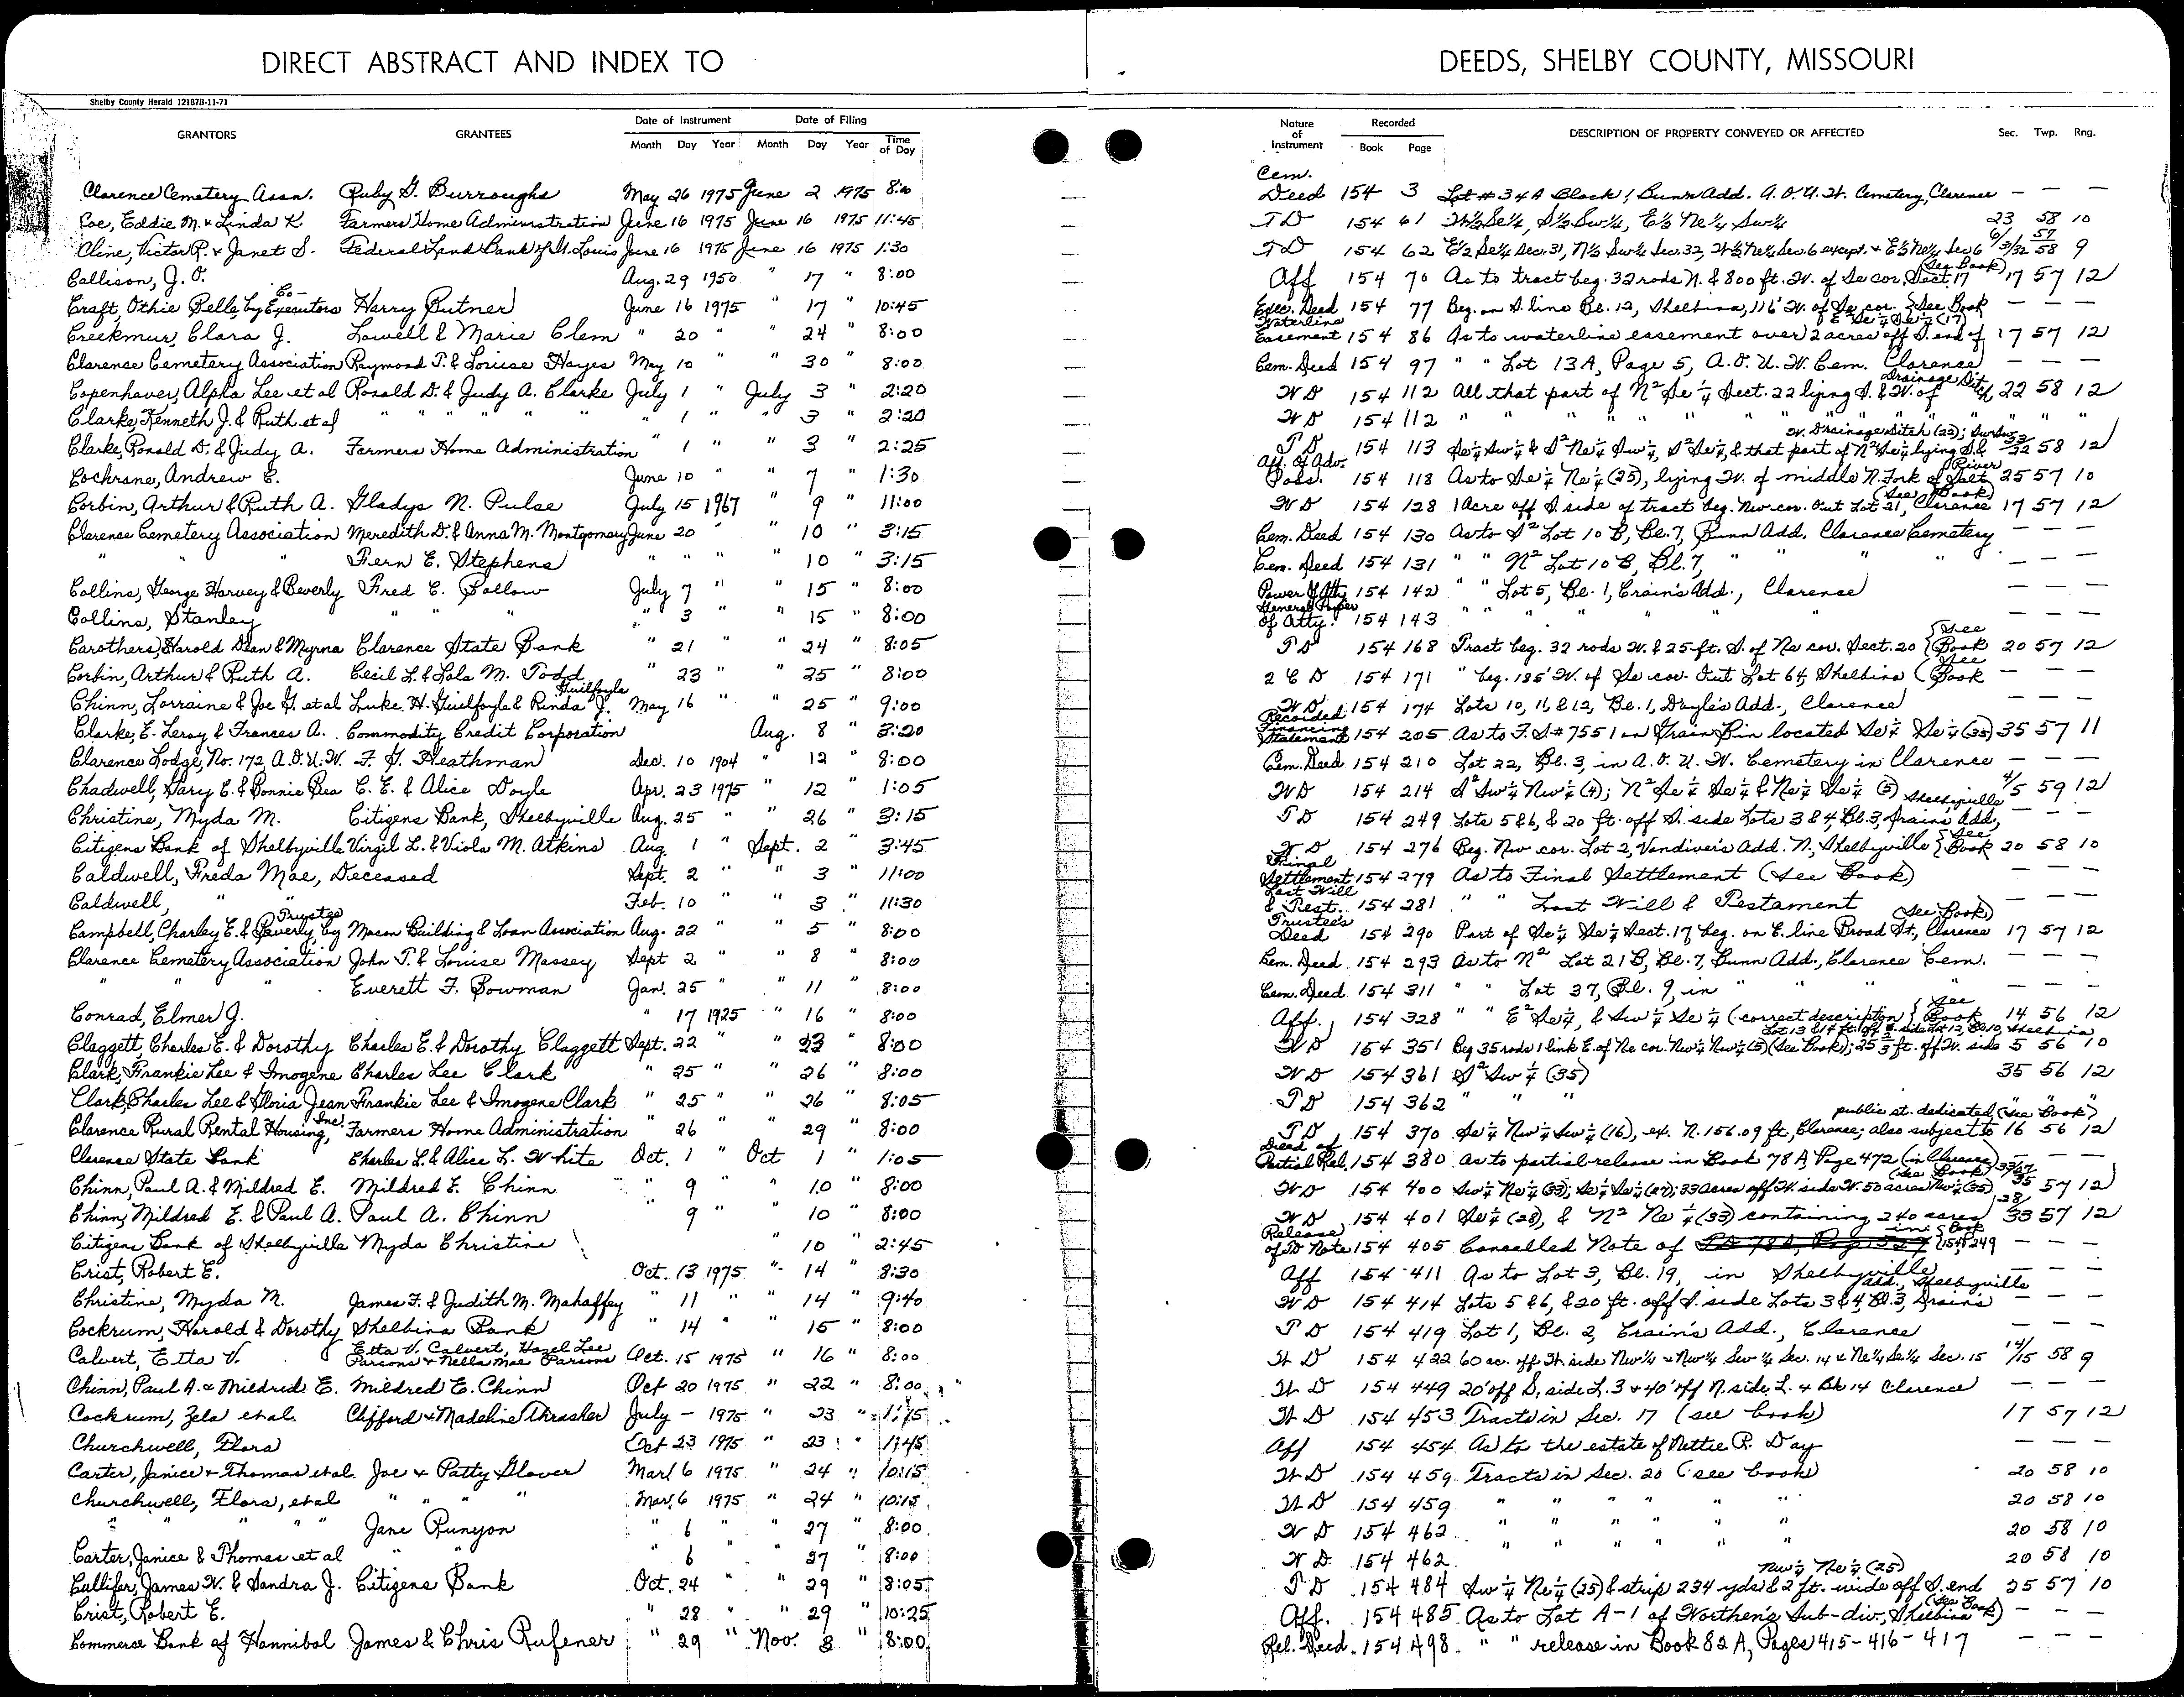 DIRECT ABSTRACT AND INDEX TO
Shelby County Herald 12187B-11-71
GRANTORS GRANTEES Date of Instrument Date of Filing Time of Day
Month Day Year Month Day Year
Clarence Cemetery Assn. Ruby G. Burroughs May 26 1975 June 2 1975 8:00
Coe, Eddie M. & Linda K. Farmers Home Administration June 16 1975 June 16 1975 11:45
Cline, Victor R. & Janet S. Federal Land Bank of St. Louis June 16 1975 June 16 1975 1:30
Callison, J. O. Aug. 29 1950 " 17 " 8:00
Craft, Othie Belle, by Co-Executors Harry Putner June 16 1975 " 17 " 10:45
Creekmur, Clara J. Lowell & Marie Clem " 20 " " 24 " 8:00
Clarence Cemetery Association Raymond T. & Louise Hayes May 10 " " 30 " 8:00
Copenhaver, Alpha Lee et al Ronald D. & Judy A. Clarke July 1 " July 3 " 2:20
Clarke, Kenneth J. & Ruth et al " " " " " " 1 " " 3 " 2:20
Clarke, Ronald D. & Judy A. Farmers Home Administration " 1 " " 3 " 2:25
Cochrane, Andrew E. June 10 " " 7 " 1:30
Corbin, Arthur & Ruth A. Gladys N. Pulse July 15 1967 " 9 " 11:00
Clarence Cemetery Association Meredith D. & Anna M. Montgomery June 20 " " 10 " 3:15
" " " Fern E. Stephens " " " " 10 " 3:15
Collins, George Harvey & Beverly Fred C. Bollow July 7 " " 15 " 8:00
Collins, Stanley " " " " 3 " " 15 " 8:00
Carothers, Harold Dean & Myrna Clarence State Bank " 21 " " 24 " 8:05
Corbin, Arthur & Ruth A. Cecil L. & Lola M. Todd " 23 " " 25 " 8:00
Chinn, Lorraine & Joe G. et al Luke H. Guilfoyle & Rinda J. Guilfoyle May 16 " " 25 " 9:00
Clarke, E. Leroy & Frances A. Commodity Credit Corporation Aug. 8 " 3:20
Clarence Lodge, No. 172, A.O.U.W. F. G. Heathman Dec. 10 1904 " 12 " 8:00
Chadwell, Gary E. & Bonnie Bea C. E. & Alice Doyle Apr. 23 1975 " 12 " 1:05
Christine, Myda M. Citizens Bank, Shelbyville Aug. 25 " " 26 " 3:15
Citizens Bank of Shelbyville Virgil L. & Viola M. Atkins Aug. 1 " Sept. 2 " 3:45
Caldwell, Freda Mae, Deceased Sept. 2 " " 3 " 11:00
Caldwell, " " Feb. 10 " " 3 " 11:30
Campbell, Charley E. & Beverly, by Trustee Macon Building & Loan Association Aug. 22 " " 5 " 8:00
Clarence Cemetery Association John T. & Louise Massey Sept 2 " " 8 " 8:00
" " " Everett F. Bowman Jan. 25 " " 11 " 8:00
Conrad, Elmer J. " 17 1925 " 16 " 8:00
Claggett, Charles E. & Dorothy Charles E. & Dorothy Claggett Sept. 22 " " 23 " 8:00
Clark, Frankie Lee & Imogene Charles Lee Clark " 25 " " 26 " 8:00
Clark, Charles Lee & Gloria Jean Frankie Lee & Imogene Clark " 25 " " 26 " 8:05
Clarence Rural Rental Housing, Inc. Farmers Home Administration " 26 " 29 " 8:00
Clarence State Bank Charles L. & Alice L. White Oct. 1 " Oct 1 " 1:05
Chinn, Paul A. & Mildred E. Mildred E. Chinn " 9 " " 10 " 8:00
Chinn, Mildred E. & Paul A. Paul A. Chinn " 9 " " 10 " 8:00
Citizens Bank of Shelbyville Myda Christine " 10 " 2:45
Crist, Robert E. Oct. 13 1975 " 14 " 8:30
Christine, Myda M. James F. & Judith M. Mahaffey " 11 " " 14 " 9:40
Cockrum, Harold & Dorothy Shelbina Bank " 14 " " 15 " 8:00
Calvert, Etta V. Etta V. Calvert, Hazel Lee Parsons & Nella Mae Parsons Oct. 15 1975 " 16 " 8:00
Chinn, Paul A. & Mildred E. Mildred E. Chinn Oct 20 1975 " 22 " 8:00
Cockrum, Zela et al. Clifford & Madeline Thrasher July - 1975 " 23 " 1:15
Churchwell, Flora Oct 23 1975 " 23 " 1:45
Carter, Janice & Thomas et al. Joe & Patty Glover Mar. 6 1975 " 24 " 10:15
Churchwell, Flora, et al " " " " Mar. 6 1975 " 24 " 10:15
" " " " Jane Runyon " 6 " " 27 " 8:00
Carter, Janice & Thomas et al " " " 6 " 27 " 8:00
Cullifer, James W. & Sandra J. Citizens Bank Oct. 24 " " 29 " 8:05
Crist, Robert E. " 28 " " 29 " 10:25
Commerce Bank of Hannibal James & Chris Rufener " 29 " Nov. 3 " 8:00
DEEDS, SHELBY COUNTY, MISSOURI
Nature of Instrument Recorded DESCRIPTION OF PROPERTY CONVEYED OR AFFECTED Sec. Twp. Rng.
Book Page
Cem. Deed 154 3 Lot # 34A Block 1, Bunn Add. A.O.U.W. Cemetery, Clarence — — —
T D 154 61 W½ Se¼, S½ Sw¼, E½ Ne¼ Sw¼ 23 58 10
T D 154 62 E½ Se¼ Sec. 31, N½ Sw¼ Sec. 32, W½ Ne¼ Sec. 6 except. & E½ Ne¼ Sec 6 6/31/32 57/58 9
Aff 154 70 As to tract beg. 32 rods N. & 800 ft. W. of Se cor. Sect. 17 (See Book) 17 57 12
Exec. Deed 154 77 Beg. on S. line Bl. 12, Shelbina, 116' W. of Se cor. {See Book — — —
Waterline Easement 154 86 As to waterline easement over 2 acres off S. end of E² Se¼ Se¼ (17) 17 57 12
Cem. Deed 154 97 " " Lot 13A, Page 5, A.O.U.W. Cem. Clarence — — —
W D 154 112 All that part of N² Se¼ Sect. 22 lying S. & W. of Drainage Ditch 22 58 12
W D 154 112 " " " " " " " " " " " "
T D 154 113 Se¼ Sw¼ & S² Ne¼ Sw¼, S² Se¼, & that part of N² Se¼ lying S. & W. Drainage Ditch (22); 22 58 12
Aff. of Adv. Poss. 154 118 As to Se¼ Ne¼ (25), lying W. of middle N. Fork of Salt River 25 57 10
W D 154 128 1 Acre off S. side of tract beg. Nw cor. Out Lot 21, Clarence (See Book) 17 57 12
Cem. Deed 154 130 As to S² Lot 10 B, Bl. 7, Bunn Add. Clarence Cemetery — — —
Cem. Deed 154 131 " " N² Lot 10 B, Bl. 7, " " " " — — —
Power of Atty 154 142 " " Lot 5, Bl. 1, Crain's Add., Clarence — — —
General Power of Atty. 154 143 " " " " " " — — —
T D 154 168 Tract beg. 32 rods W. & 25 ft. S. of Ne cor. Sect. 20 {See Book 20 57 12
2 C D 154 171 " beg. 185' W. of Se cor. Out Lot 64, Shelbina (See Book — — —
W D 154 174 Lots 10, 11, & 12, Bl. 1, Doyle's Add., Clarence — — —
Recorded Financing Statement 154 205 As to F. S # 7551 on Grain Bin located Se¼ Se¼ (35) 35 57 11
Cem. Deed 154 210 Lot 22, Bl. 3, in A.O.U.W. Cemetery in Clarence — — —
W D 154 214 S² Sw¼ Nw¼ (4); N² Se¼ Se¼ & Ne¼ Se¼ (5) 4/5 59 12
T D 154 249 Lots 5 & 6, & 20 ft. off S. side Lots 3 & 4, Bl. 3, Drains Add., Shelbyville — — —
W D 154 276 Beg. Nw cor. Lot 2, Vandiver's Add. N., Shelbyville {See Book 20 58 10
Final Settlement 154 279 As to Final Settlement (See Book) — — —
Last Will & Test. 154 281 " " Last Will & Testament — — —
Trustee's Deed 154 290 Part of Se¼ Se¼ Sect. 17, beg. on E. line Broad St., Clarence (See Book) 17 57 12
Cem. Deed 154 293 As to N² Lot 21 B, Bl. 7, Bunn Add., Clarence Cem. — — —
Cem. Deed 154 311 " " Lot 37, Bl. 9, in " " " " — — —
Aff. 154 328 " " E² Se¼, & Sw¼ Se¼ (correct description) {See Book 14 56 12
W D 154 351 Beg 35 rods 1 link E. of Ne cor. Nw¼ Nw¼ (5) (See Book); 25⅔ ft. off W. side Lot 13 & 14 ft. off E. side Lot 12, Bl. 10, Shelbina 5 56 10
W D 154 361 S² Sw¼ (35) 35 56 12
T D 154 362 " " " " " "
T D 154 370 Se¼ Nw¼ Sw¼ (16), ex. N. 156.09 ft, Clarence; also subject to public st. dedicated (See Book) 16 56 12
Deed of Partial Rel. 154 380 As to partial release in Book 78A, Page 472 (in Clarence) — — —
W D 154 400 Sw¼ Ne¼ (33); Se¼ Se¼ (27); 33 acres off W. side W. 50 acres Nw¼ (35) (See Book) 33/27/35 57 12
W D 154 401 Se¼ (28), & N² Ne¼ (33) containing 240 acres 28/33 57 12
Release of TD Note 154 405 Cancelled Note of in: {Book 154 P 249 — — —
Aff 154 411 As to Lot 3, Bl. 19, in Shelbyville — — —
W D 154 414 Lots 5 & 6, & 20 ft. off S. side Lots 3 & 4, Bl. 3, Drain's Add., Shelbyville — — —
T D 154 419 Lot 1, Bl. 2, Crain's Add., Clarence — — —
W D 154 422 60 ac. off W. side Nw¼ & Nw¼ Sw¼ Sec. 14 & Ne¼ Se¼ Sec. 15 14/15 58 9
W D 154 449 20' off S. side L. 3 & 40' off N. side L. 4 Bk 14 Clarence — — —
W D 154 453 Tracts in Sec. 17 (see book) 17 57 12
Aff 154 454 As to the estate of Nettie R. Day — — —
W D 154 459 Tracts in Sec. 20 (see book) 20 58 10
W D 154 459 " " " " " 20 58 10
W D 154 462 " " " " " 20 58 10
W D 154 462 " " " " " 20 58 10
T D 154 484 Sw¼ Ne¼ (25) & strip 234 yds & 2 ft. wide off S. end Nw¼ Ne¼ (25) 25 57 10
Aff. 154 485 As to Lot A-1 of Northen's Sub-div., Shelbina (See Book) — — —
Rel. Deed 154 498 " " release in Book 82 A, Pages 415-416-417 — — —